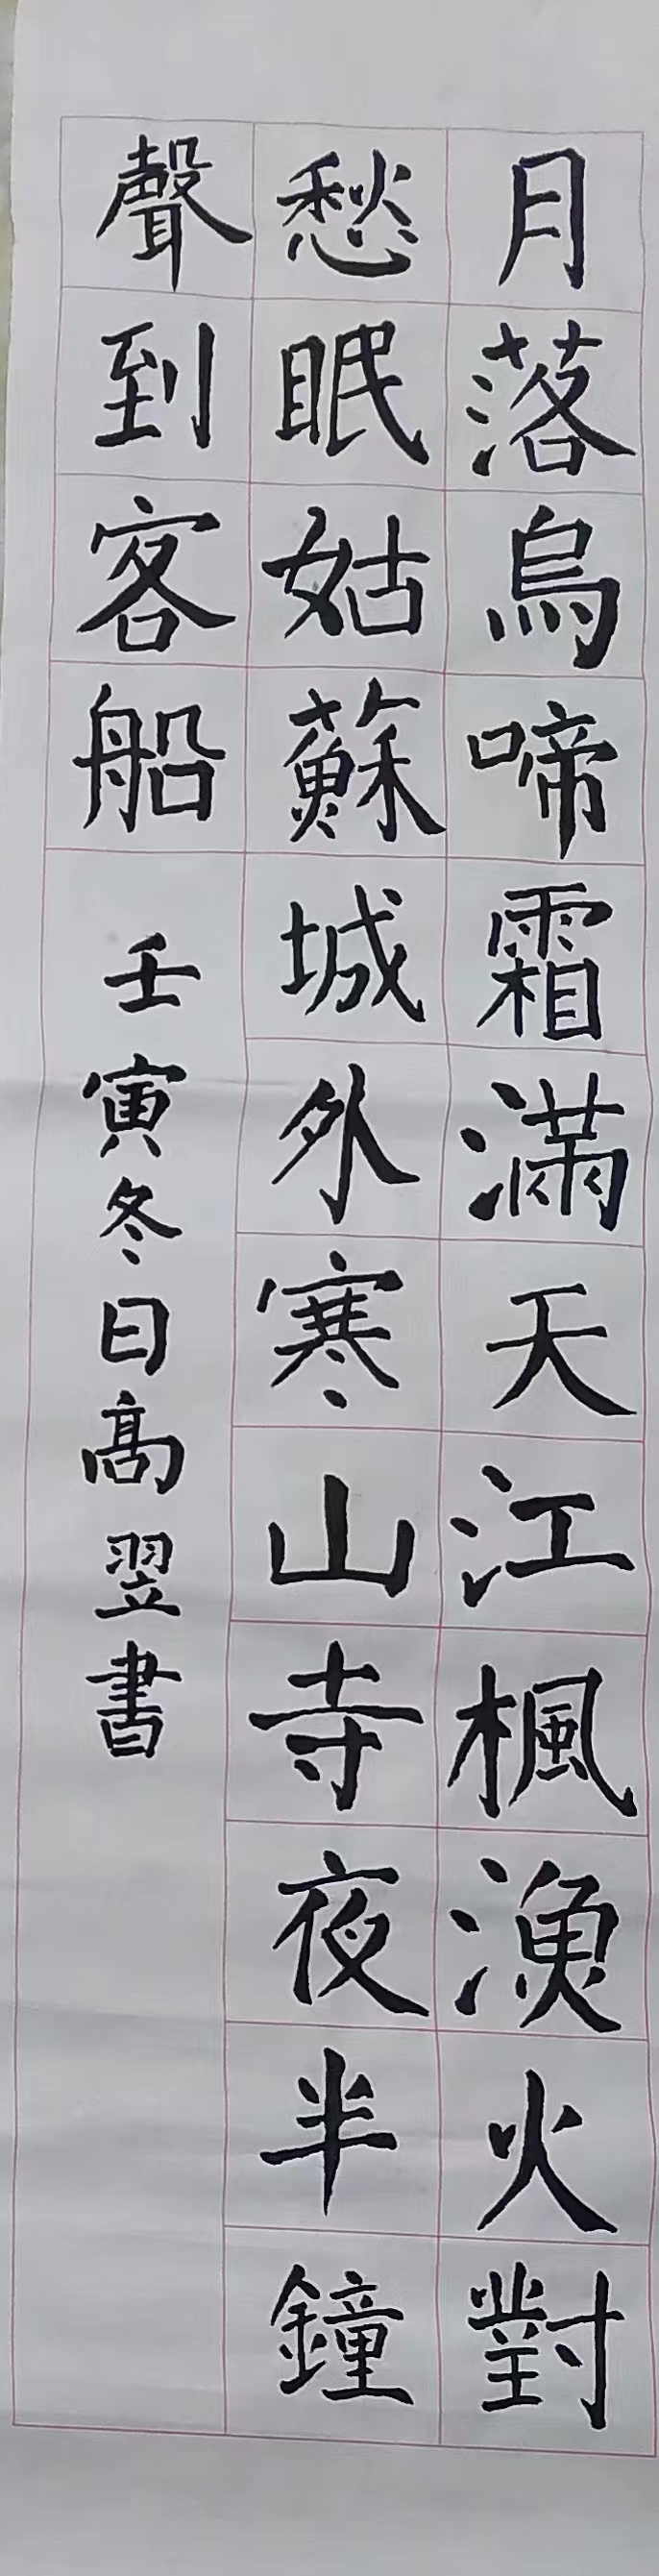 月落烏啼霜滿天江楓漁火對
愁眠姑蘇城外寒山寺夜半鐘
聲到客船 壬寅冬日高翌書